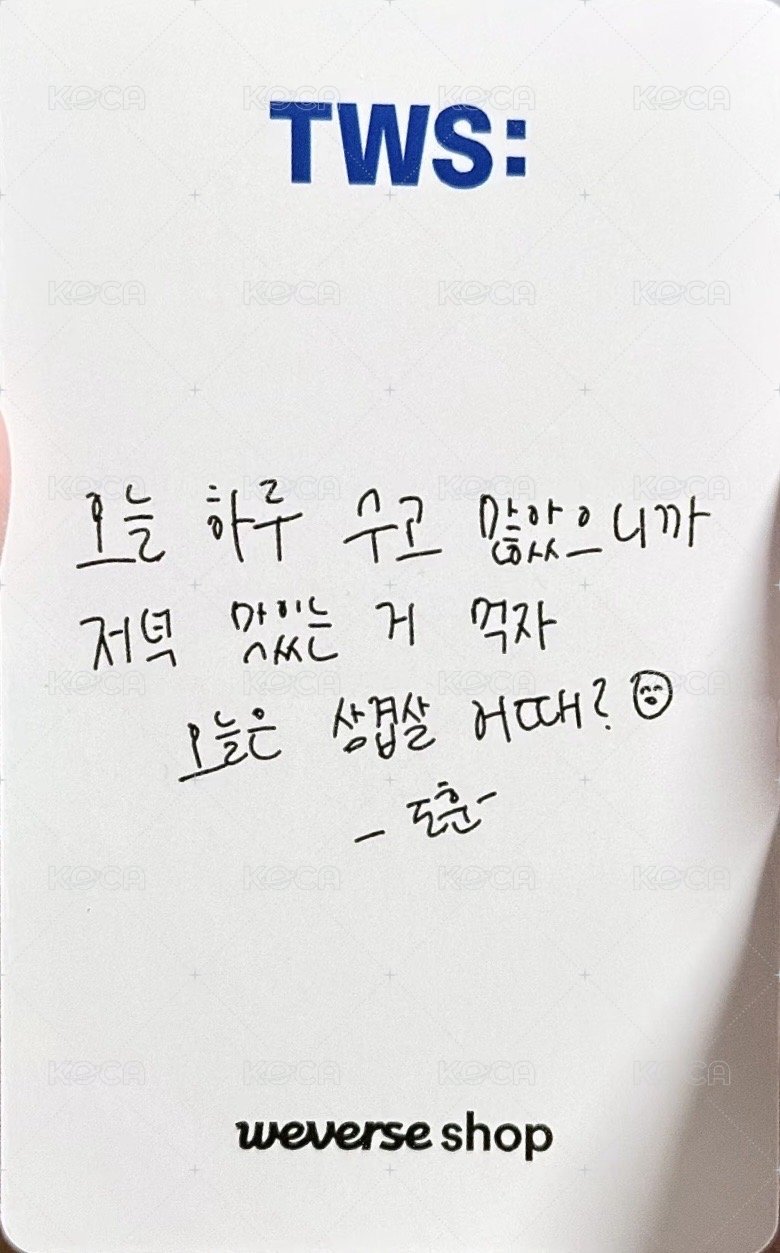 TWS:
오늘 하루 수고 많았으니까
저녁 맛있는 거 먹자
오늘은 삼겹살 어때?
- 도훈 -
weverse shop
KOCA